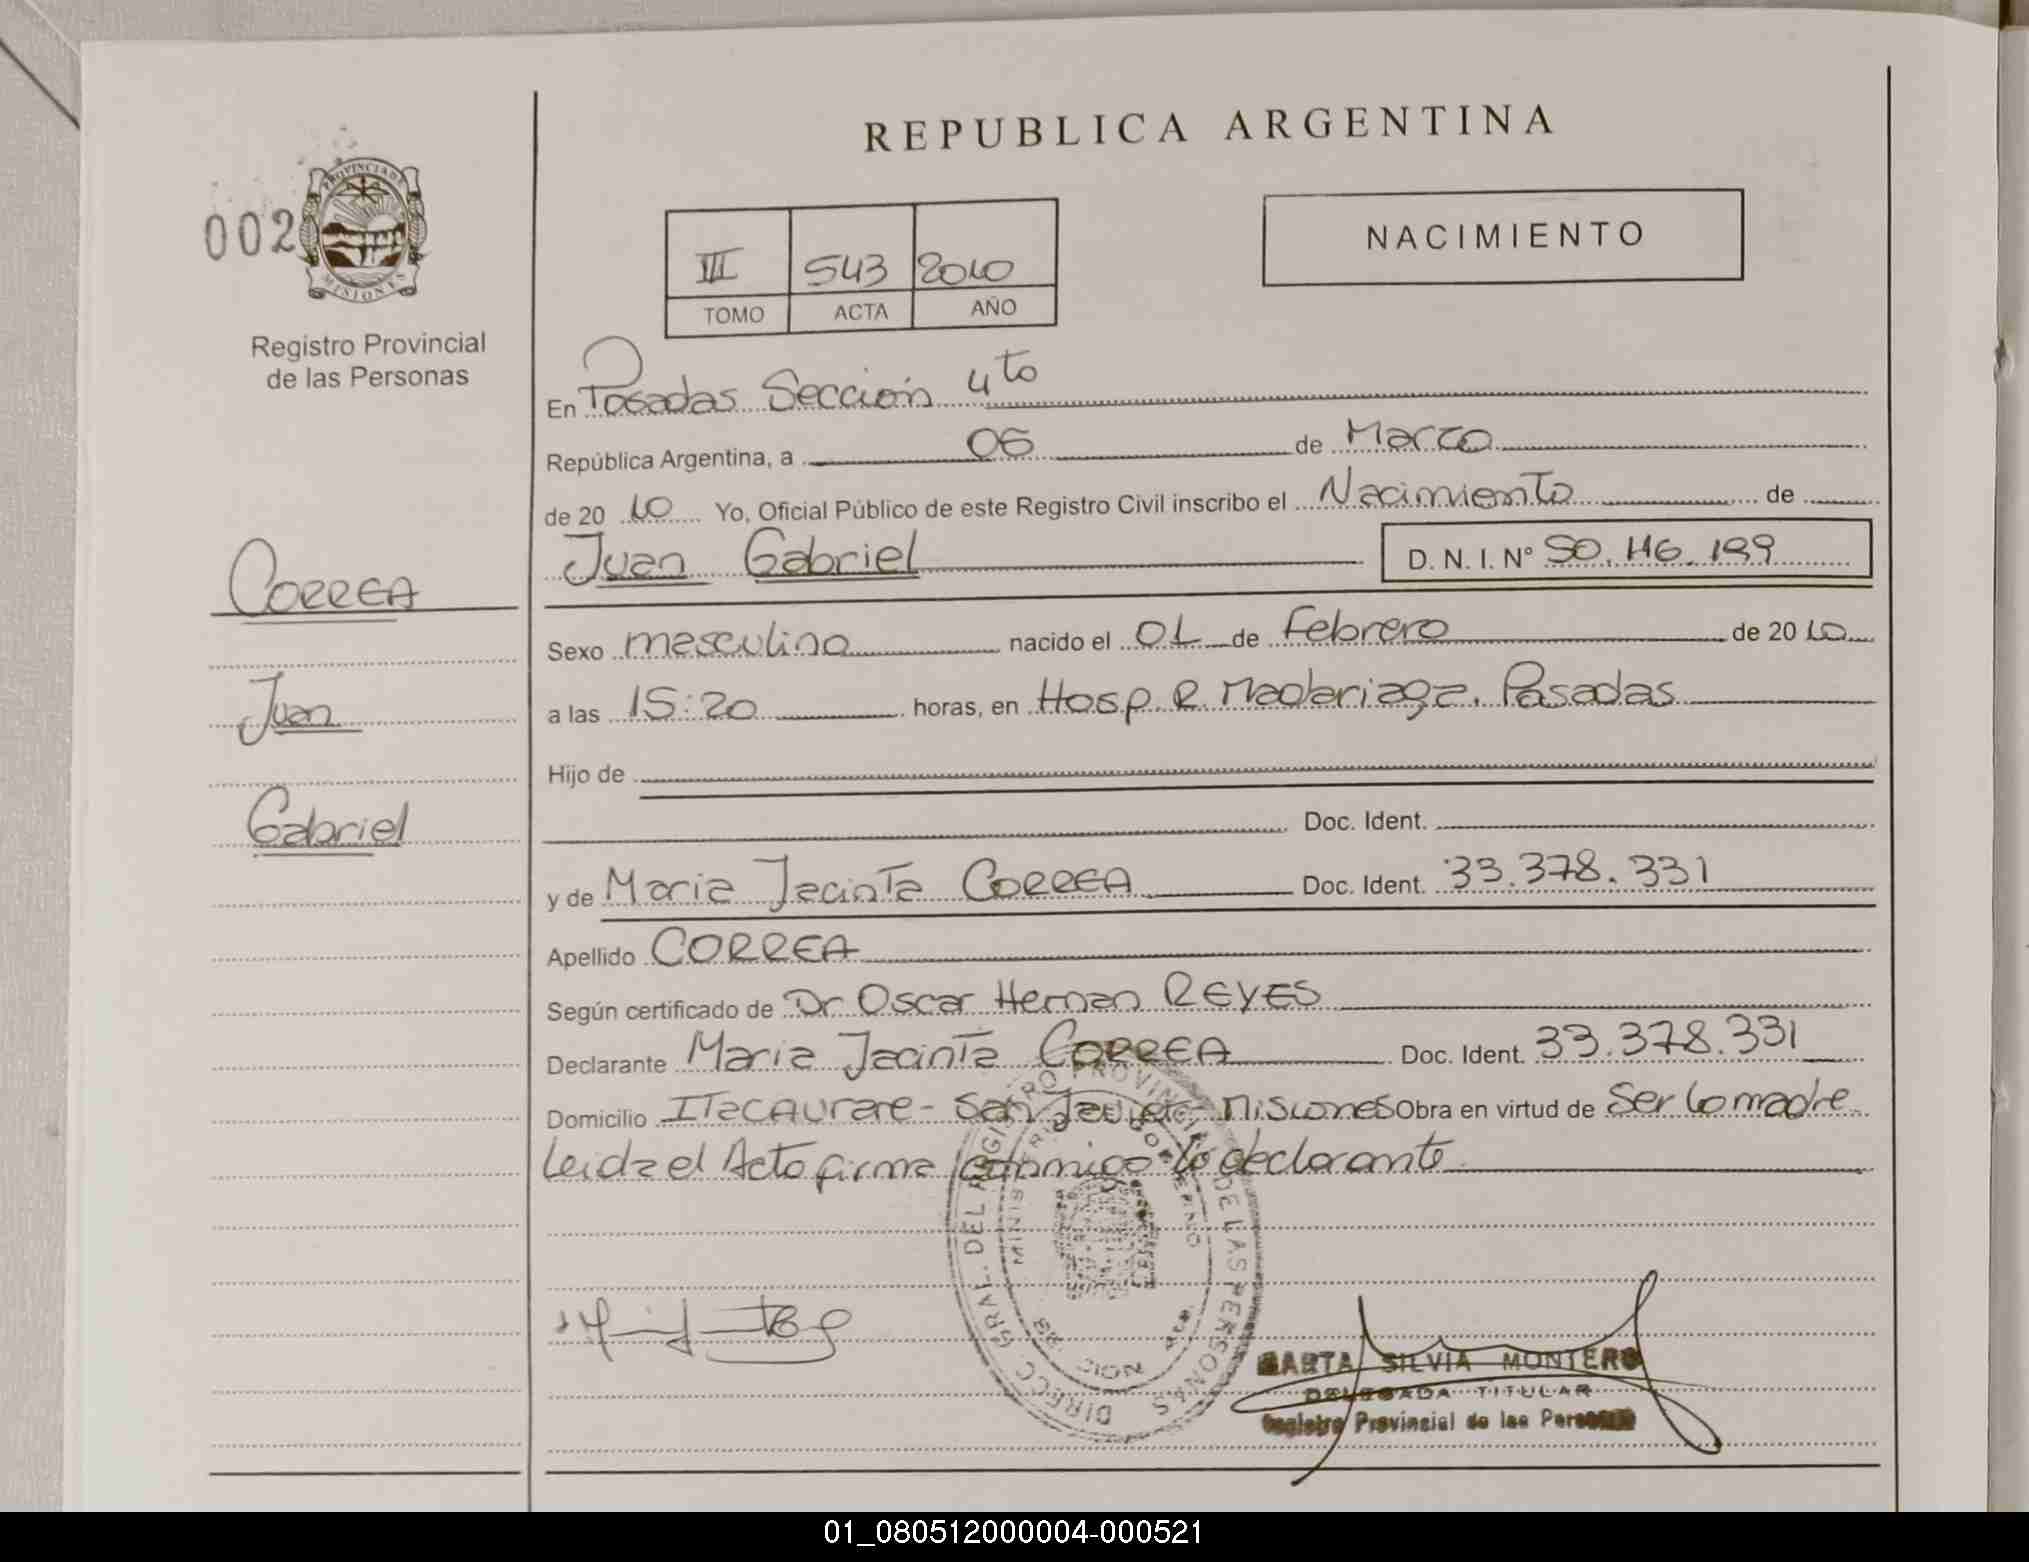 REPUBLICA ARGENTINA
002
PROVINCIA DE
MISIONES
Registro Provincial
de las Personas
III 543 2010
TOMO ACTA AÑO
NACIMIENTO
En Posadas Sección 4to
República Argentina, a 06 de Marzo
de 2010 Yo, Oficial Público de este Registro Civil inscribo el Nacimiento de
Juan Gabriel D. N. I. Nº 50.116.199
CORREA
Juan
Gabriel
Sexo masculino nacido el 01 de Febrero de 2010
a las 15:20 horas, en Hosp. R. Madariaga. Posadas
Hijo de
Doc. Ident.
y de Maria Jacinta CORREA Doc. Ident. 33.378.331
Apellido CORREA
Según certificado de Dr Oscar Hernan REYES
Declarante Maria Jacinta CORREA Doc. Ident. 33.378.331
Domicilio ITACAUrare - San Javier - Misiones Obra en virtud de Ser la madre
Leida el Acta firma conmigo la declarante
DIRECC. GRAL. DEL REGISTRO PROVINCIAL DE LAS PERSONAS
MARTA SILVIA MONTERO
DELEGADA TITULAR
Registro Provincial de las Personas
01_080512000004-000521